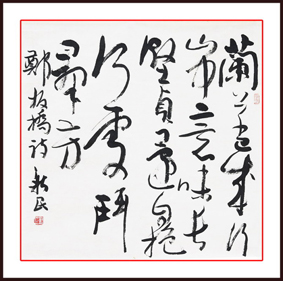 蘭草已成行
山中意味长
堅貞還自抱
何事鬥
羣芳
鄭板橋詩